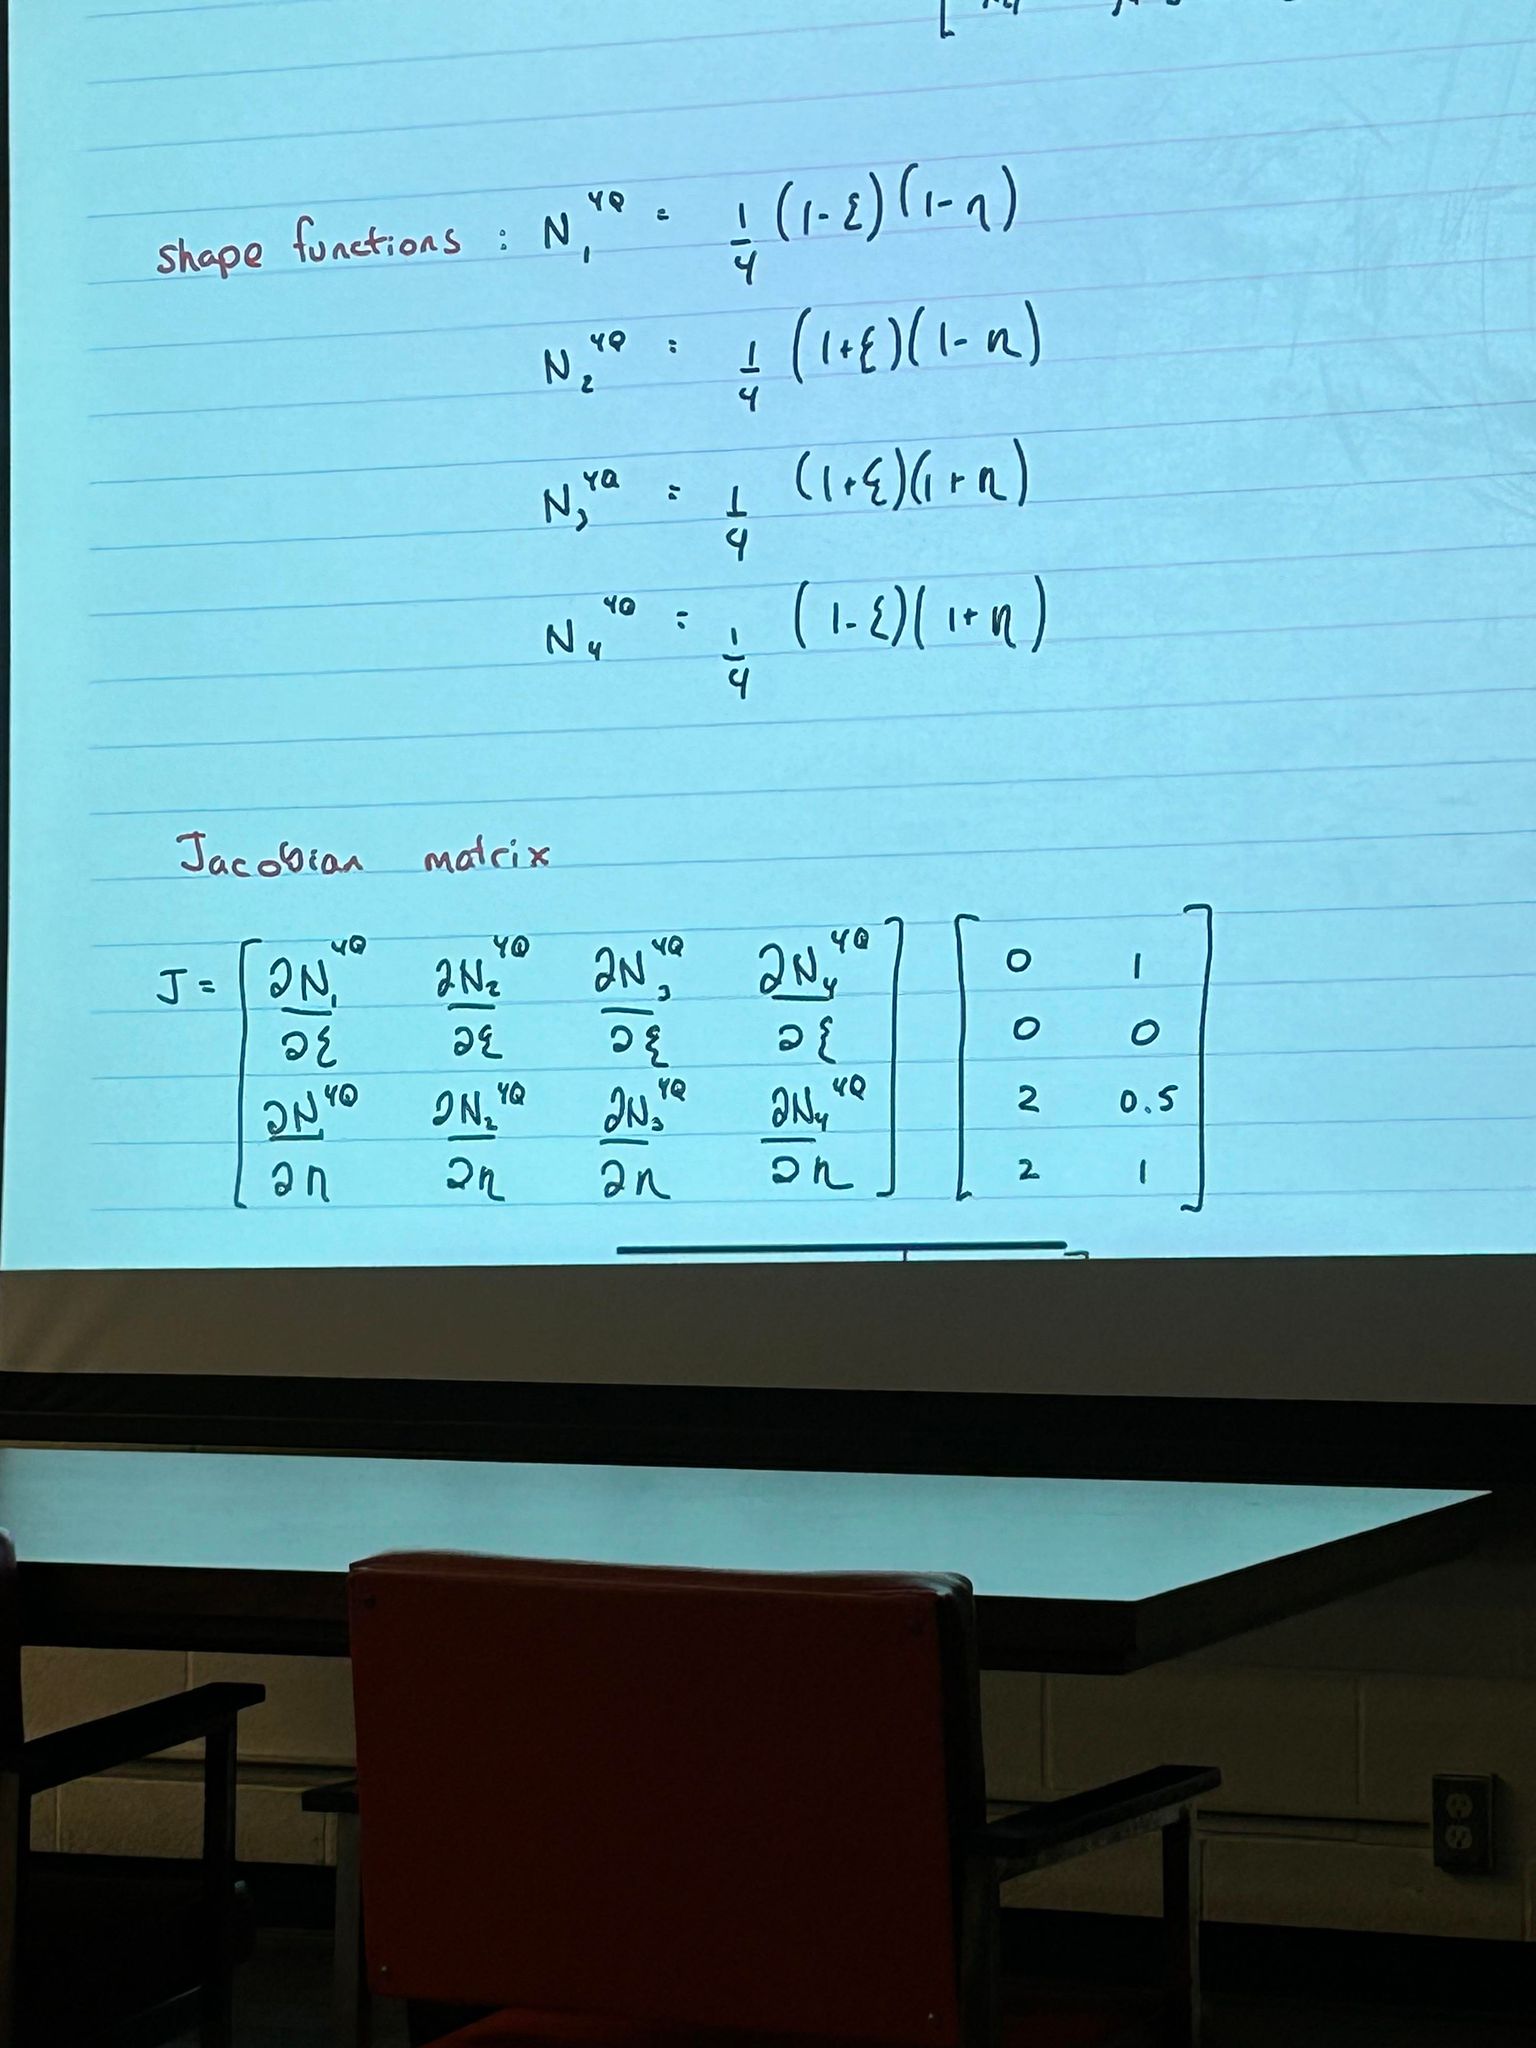 shape functions : N₁^4Q = 1/4 (1-ξ)(1-η)
N₂^4Q = 1/4 (1+ξ)(1-η)
N₃^4Q = 1/4 (1+ξ)(1+η)
N₄^4Q = 1/4 (1-ξ)(1+η)
Jacobian matrix
J = [ ∂N₁^4Q/∂ξ ∂N₂^4Q/∂ξ ∂N₃^4Q/∂ξ ∂N₄^4Q/∂ξ ] [ 0 1
0 0
∂N^4Q/∂η ∂N₂^4Q/∂η ∂N₃^4Q/∂η ∂N₄^4Q/∂η 2 0.5
2 1 ]